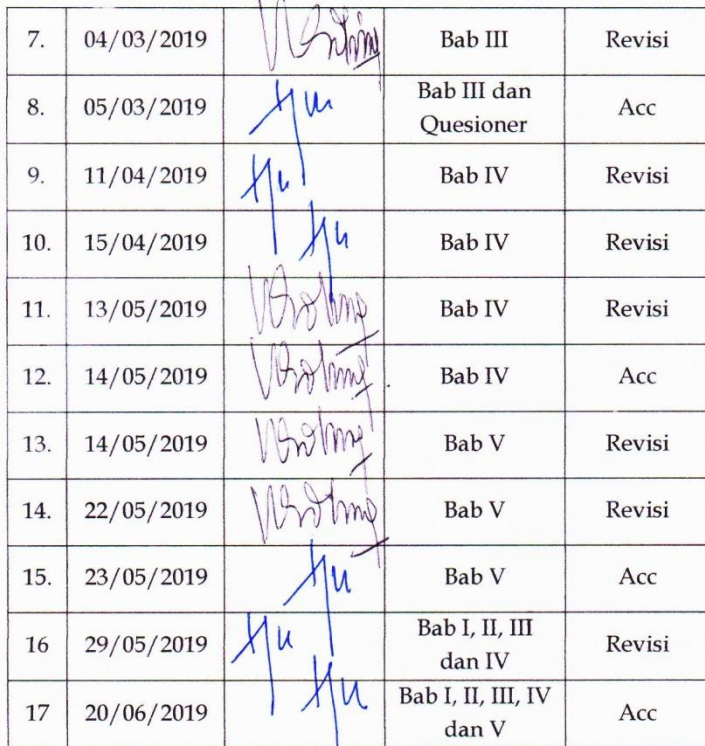 7. 04/03/2019 Bab III Revisi
8. 05/03/2019 Bab III dan
Quesioner Acc
9. 11/04/2019 Bab IV Revisi
10. 15/04/2019 Bab IV Revisi
11. 13/05/2019 Bab IV Revisi
12. 14/05/2019 Bab IV Acc
13. 14/05/2019 Bab V Revisi
14. 22/05/2019 Bab V Revisi
15. 23/05/2019 Bab V Acc
16 29/05/2019 Bab I, II, III
dan IV Revisi
17 20/06/2019 Bab I, II, III, IV
dan V Acc